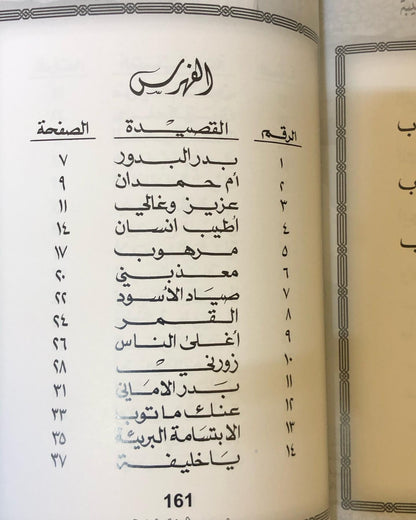 الفهرس
الرقم القصيدة الصفحة
١ بدر البدور ٧
٢ أم حمدان ٩
٣ عزيز وغالي ١١
٤ أطيب انسان ١٤
٥ مرهوب ١٧
٦ معذبني ٢٠
٧ صياد الأسود ٢٢
٨ القمر ٢٤
٩ أغلى الناس ٢٦
١٠ زورني ٢٨
١١ بدر الاماني ٣١
١٢ عنك ما توب ٣٣
١٣ الابتسامة البريئة ٣٥
١٤ يا خليفة ٣٧
161